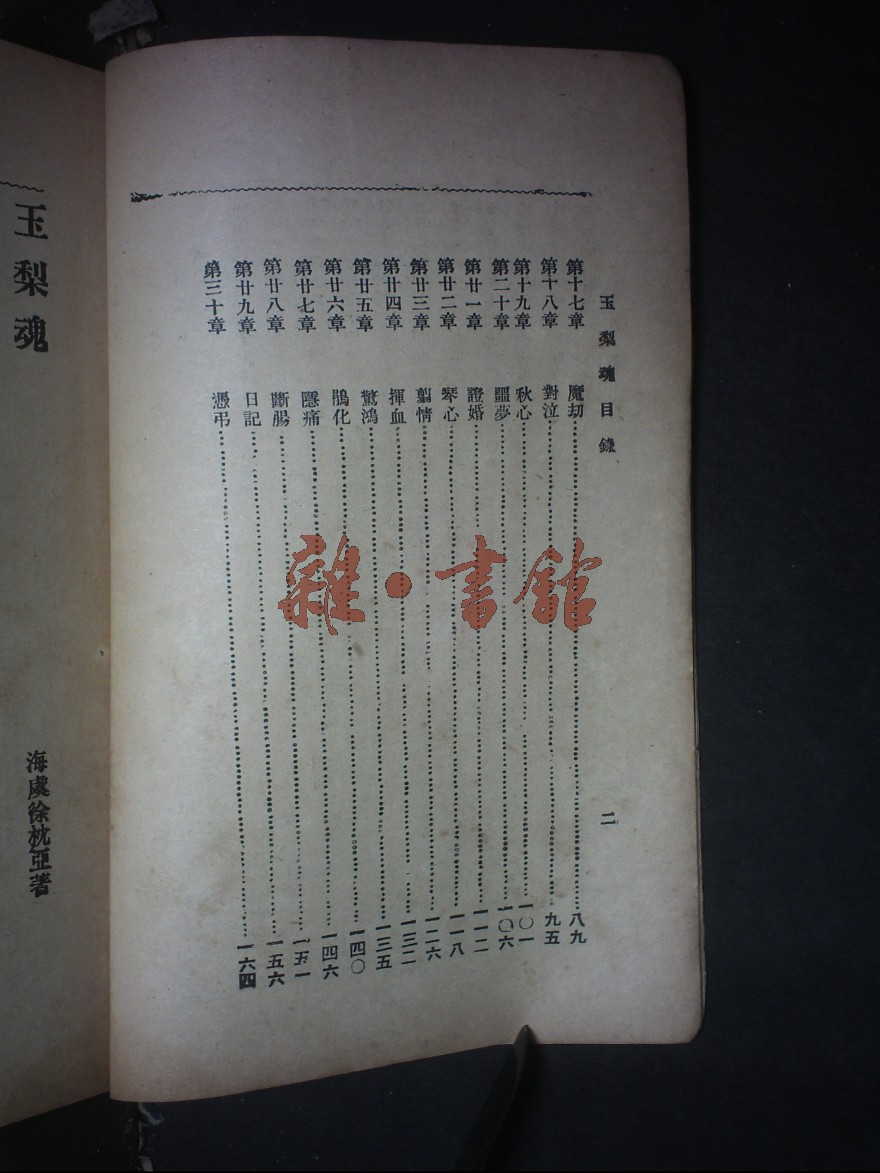 玉梨魂目錄 二
第十七章 魔劫 八九
第十八章 對泣 九五
第十九章 秋心 一〇一
第二十章 噩夢 一〇六
第廿一章 證婚 一一二
第廿二章 琴心 一一八
第廿三章 翦情 一二六
第廿四章 揮血 一三二
第廿五章 驚鴻 一三五
第廿六章 鵑化 一四〇
第廿七章 隱痛 一四六
第廿八章 斷腸 一五一
第廿九章 日記 一五六
第三十章 憑弔 一六四
玉梨魂
海虞徐枕亞著
雜·書館